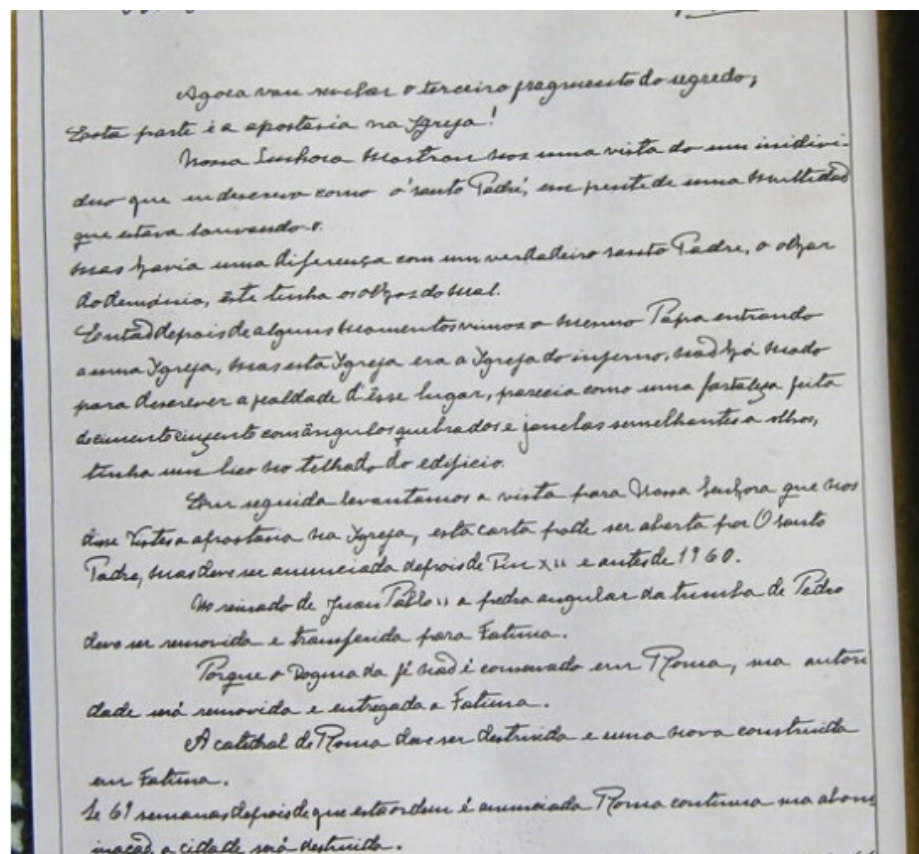 Agora vou revelar o terceiro fragmento do segredo,
Esta parte é a apostasia na Igreja!
Nossa Senhora mostrou nos uma vista do um indivi-
duo que eu descrevo como o 'santo Padre', em frente de uma multidaõ
que estava louvando-o.
Mas havia uma diferença com um verdadeiro santo Padre, o olhar
do demónio, êste tinha os olhos do mal.
Entaõ depois de alguns momentos vimos o mesmo Papa entrando
a uma Igreja, mas esta Igreja era a Igreja do inferno, naõ há modo
para descrever a fealdade d'êsse lugar, parecia como uma fortaleza feita
de cimento cinzento com ângulos quebrados e janelas semelhantes a olhos,
tinha um bico no telhado do edificio.
Em seguida levantamos a vista para Nossa Senhora que nos
disse Vistes a apostasia na Igreja, esta carta pode ser aberta por O santo
Padre, mas deve ser anunciada depois de Pio XII e antes de 1960.
No reinado de Juan Pablo II a pedra angular da tumba de Pedro
deve ser removida e transferida para Fatima.
Porque o Dogma da fé naõ é conservado em Roma, sua autori
dade será removida e entregada a Fatima.
A catedral de Roma deve ser destruida e uma nova construida
em Fatima.
Se 69 semanas depois de que esta ordem é anunciada Roma continua sua abom
inaçaõ, a cidade será destruida.